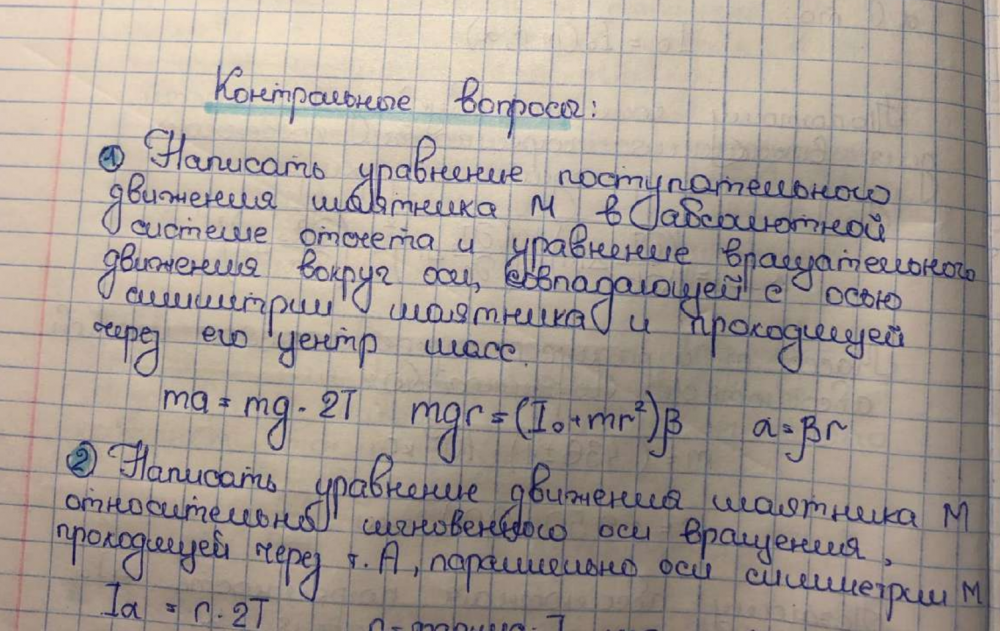 Контрольные вопросы:
① Написать уравнение поступательного
движения маятника М в абсолютной
системе отсчета и уравнение вращательного
движения вокруг оси, совпадающей с осью
симметрии маятника и проходящей
через его центр масс.
ma = mg - 2T mgr = (I₀ + mr²)β a = βr
② Написать уравнение движения маятника М
относительно мгновенного оси вращения,
проходящей через т. А, параллельно оси симметрии М
Ia = r · 2T